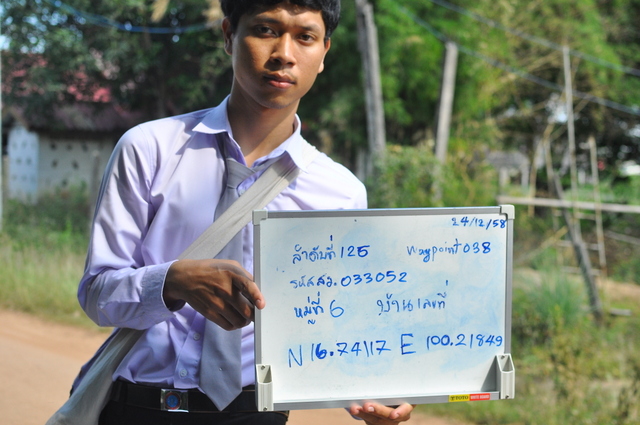 24/12/58
ลำดับที่ 125 Waypoint 038
รหัสสว. 033052
หมู่ที่ 6 บ้านเลขที่
N 16.74117 E 100.21849